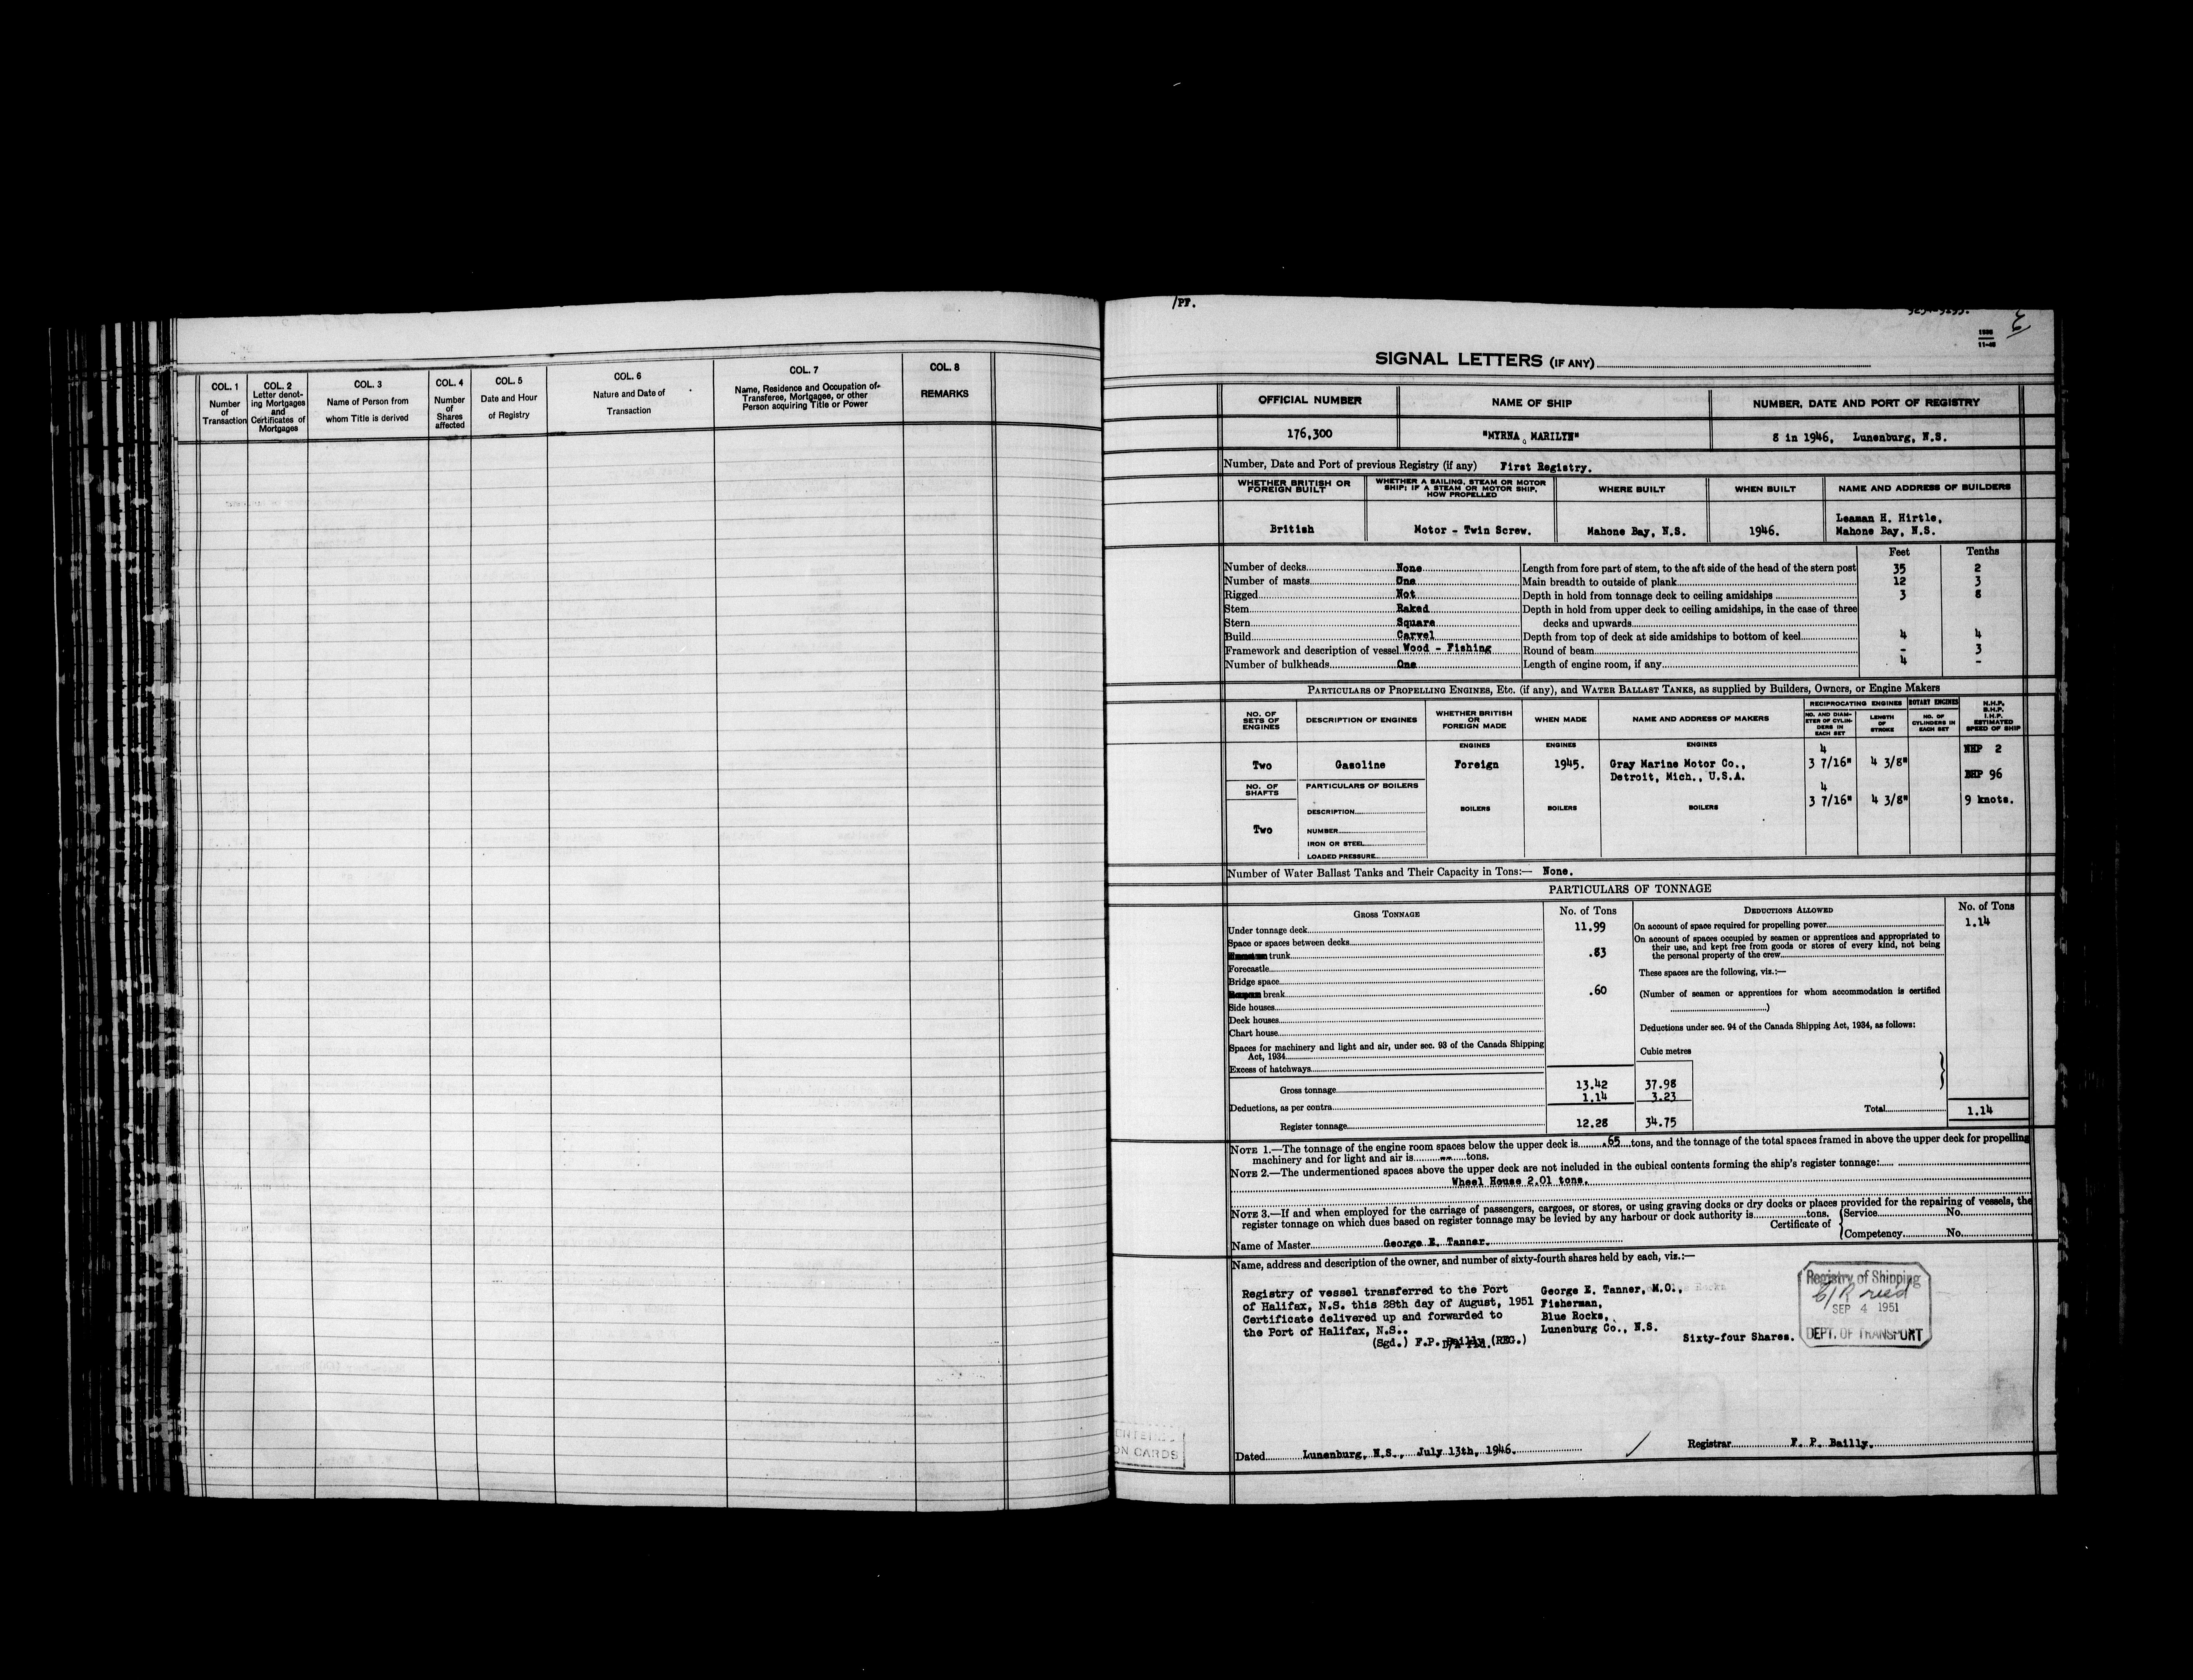 COL. 1
Number
of
Transaction
COL. 2
Letter denot-
ing Mortgages
and
Certificates of
Mortgages
COL. 3
Name of Person from
whom Title is derived
COL. 4
Number
of
Shares
affected
COL. 5
Date and Hour
of Registry
COL. 6
Nature and Date of
Transaction
COL. 7
Name, Residence and Occupation of
Transferee, Mortgagee, or other
Person acquiring Title or Power
COL. 8
REMARKS
/PF.
SIGNAL LETTERS (IF ANY)
OFFICIAL NUMBER
NAME OF SHIP
NUMBER, DATE AND PORT OF REGISTRY
176,300
"MYRNA MARILYN"
8 in 1946, Lunenburg, N.S.
Number, Date and Port of previous Registry (if any) First Registry.
WHETHER BRITISH OR
FOREIGN BUILT
WHETHER A SAILING, STEAM OR MOTOR
SHIP; IF A STEAM OR MOTOR SHIP,
HOW PROPELLED
WHERE BUILT
WHEN BUILT
NAME AND ADDRESS OF BUILDERS
British
Motor - Twin Screw.
Mahone Bay, N.S.
1946.
Leaman H. Hirtle,
Mahone Bay, N.S.
Feet Tenths
Number of decks None
Number of masts One
Rigged Not
Stem Raked
Stern Square
Build Carvel
Framework and description of vessel Wood - Fishing
Number of bulkheads One
Length from fore part of stem, to the aft side of the head of the stern post 35 2
Main breadth to outside of plank 12 3
Depth in hold from tonnage deck to ceiling amidships 3 8
Depth in hold from upper deck to ceiling amidships, in the case of three
decks and upwards
Depth from top of deck at side amidships to bottom of keel 4 4
Round of beam - 3
Length of engine room, if any 4 -
PARTICULARS OF PROPELLING ENGINES, ETC. (if any), and WATER BALLAST TANKS, as supplied by Builders, Owners, or Engine Makers
NO. OF
SETS OF
ENGINES
DESCRIPTION OF ENGINES
WHETHER BRITISH
OR
FOREIGN MADE
WHEN MADE
NAME AND ADDRESS OF MAKERS
RECIPROCATING ENGINES
NO. AND DIAM-
ETER OF CYLIN-
DERS IN
EACH SET
LENGTH
OF
STROKE
ROTARY ENGINES
NO. OF
CYLINDERS IN
EACH SET
N.H.P.
B.H.P.
I.H.P.
ESTIMATED
SPEED OF SHIP
ENGINES ENGINES ENGINES
Two
Gasoline
Foreign
1945.
Gray Marine Motor Co.,
Detroit, Mich., U.S.A.
4
3 7/16" 4 3/8"
4
3 7/16" 4 3/8"
NHP 2
BHP 96
9 knots.
NO. OF
SHAFTS
Two
PARTICULARS OF BOILERS
DESCRIPTION
NUMBER
IRON OR STEEL
LOADED PRESSURE
BOILERS BOILERS BOILERS
Number of Water Ballast Tanks and Their Capacity in Tons:— None.
PARTICULARS OF TONNAGE
GROSS TONNAGE No. of Tons
Under tonnage deck 11.99
Space or spaces between decks
trunk .83
Forecastle
Bridge space
break .60
Side houses
Deck houses
Chart house
Spaces for machinery and light and air, under sec. 93 of the Canada Shipping
Act, 1934
Excess of hatchways
Gross tonnage 13.42 37.98
Deductions, as per contra 1.14 3.23
Register tonnage 12.28 34.75
DEDUCTIONS ALLOWED No. of Tons
On account of space required for propelling power 1.14
On account of spaces occupied by seamen or apprentices and appropriated to
their use, and kept free from goods or stores of every kind, not being
the personal property of the crew
These spaces are the following, viz.:—
(Number of seamen or apprentices for whom accommodation is certified
)
Deductions under sec. 94 of the Canada Shipping Act, 1934, as follows:
Cubic metres
Total 1.14
NOTE 1.—The tonnage of the engine room spaces below the upper deck is .65 tons, and the tonnage of the total spaces framed in above the upper deck for propelling
machinery and for light and air is -- tons.
NOTE 2.—The undermentioned spaces above the upper deck are not included in the cubical contents forming the ship's register tonnage:
Wheel House 2.01 tons.
NOTE 3.—If and when employed for the carriage of passengers, cargoes, or stores, or using graving docks or dry docks or places provided for the repairing of vessels, the
register tonnage on which dues based on register tonnage may be levied by any harbour or dock authority is tons.
Certificate of
Service No.
Competency No.
Name of Master George E. Tanner.
Name, address and description of the owner, and number of sixty-fourth shares held by each, viz.:—
Registry of vessel transferred to the Port
of Halifax, N.S. this 28th day of August, 1951
Certificate delivered up and forwarded to
the Port of Halifax, N.S..
(Sgd.) F.P. Bailly (REG.)
George E. Tanner, M.O.,
Fisherman,
Blue Rocks,
Lunenburg Co., N.S.
Sixty-four Shares.
Registry of Shipping
SEP 4 1951
DEPT. OF TRANSPORT
ON CARDS
Dated Lunenburg, N.S., July 13th, 1946.
Registrar F. P. Bailly.